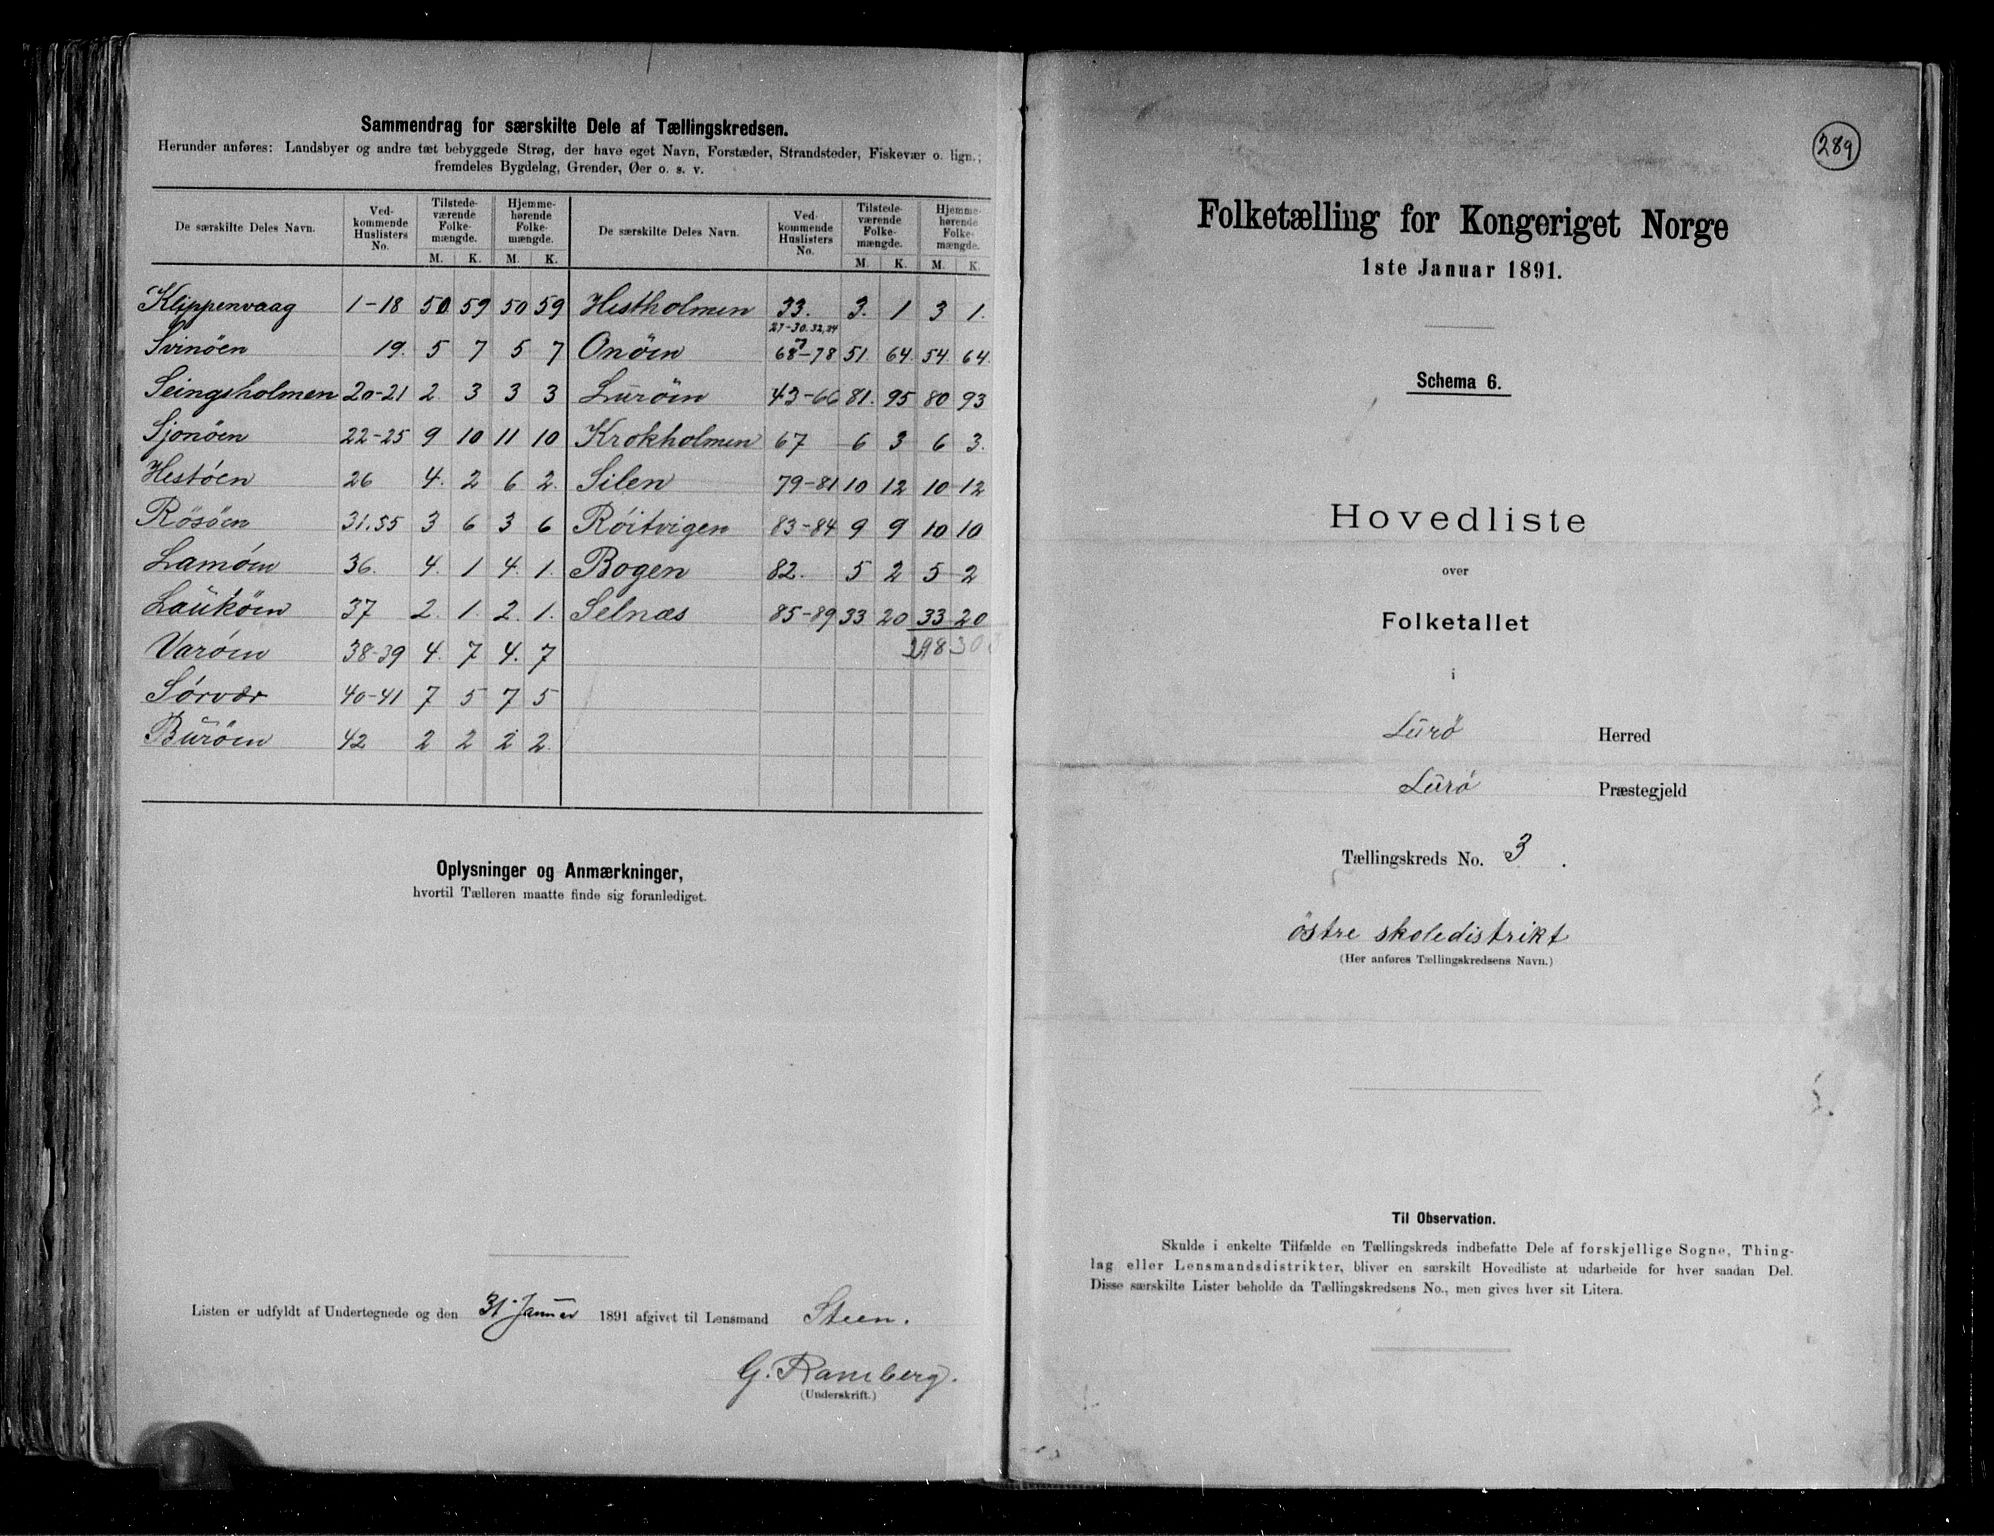 Sammendrag for særskilte Dele af Tællingskredsen.
Herunder anføres: Landsbyer og andre tæt bebyggede Strøg, der have eget Navn, Forstæder, Strandsteder, Fiskevær o. lign.;
fremdeles Bygdelag, Grender, Øer o. s. v.
De særskilte Deles Navn. Ved-kommende Huslisters No. Tilstede-værende Folke-mængde. Hjemme-hørende Folke-mængde. De særskilte Deles Navn. Ved-kommende Huslisters No. Tilstede-værende Folke-mængde. Hjemme-hørende Folke-mængde.
M. K. M. K. M. K. M. K.
Klippenvaag 1-18 50 59 50 59 Hestholmen 33. 3. 1 3 1.
27-30. 32, 34
Svinöen 19. 5 7 5 7 Onöen 68-78 51. 64. 54. 64.
Seingsholmen 20-21 2. 3 3 3 Luröen 43-66 81. 95 80 93
Sjonöen 22-25 9 10 11 10 Krokholmen 67 6 3 6 3.
Hestöen 26 4. 2 6 2. Silen 79-81 10 12 10 12
Rösöen 31.35 3 6 3 6 Röitvigen 83-84 9 9 10 10
Lamöen 36. 4. 1 4. 1. Bogen 82. 5 2 5 2
Lauköen 37 2. 1. 2. 1. Selnæs 85-89 33 20 33 20
298 303
Varöen 38-39 4. 7 4. 7
Sörvær 40-41 7 5 7 5
Buröen 42 2 2 2 2.
Oplysninger og Anmærkninger,
hvortil Tælleren maatte finde sig foranlediget.
Listen er udfyldt af Undertegnede og den 31 Januar 1891 afgivet til Lensmand Steen.
G. Ramberg.
(Underskrift.)
289
Folketælling for Kongeriget Norge
1ste Januar 1891.
Schema 6.
Hovedliste
over
Folketallet
i
Lurø Herred
Lurø Præstegjeld
Tællingskreds No. 3.
östre skoledistrikt
(Her anføres Tællingskredsens Navn.)
Til Observation.
Skulde i enkelte Tilfælde en Tællingskreds indbefatte Dele af forskjellige Sogne, Thing-
lag eller Lensmandsdistrikter, bliver en særskilt Hovedliste at udarbeide for hver saadan Del.
Disse særskilte Lister beholde da Tællingskredsens No., men gives hver sit Litera.